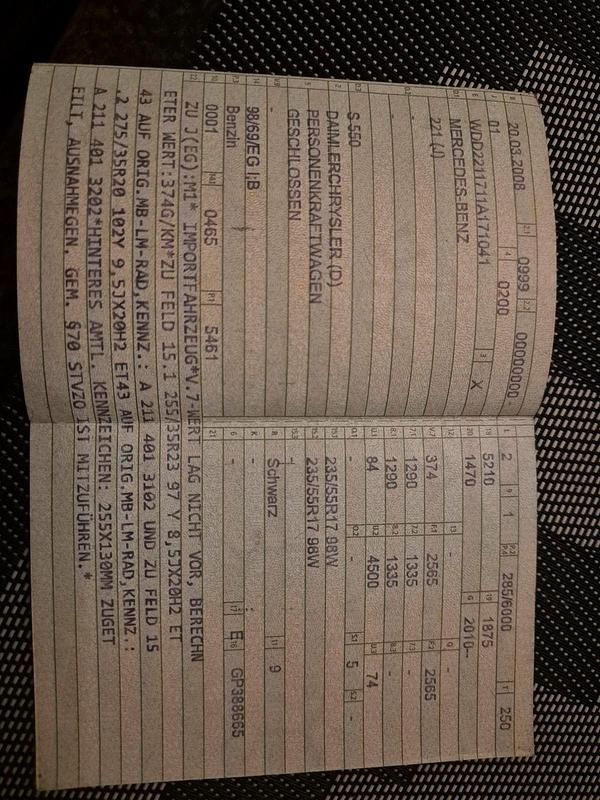 B 20.03.2008 2.1 0999 2.2 00000000-
J 01 4 0200
E WDD2211711A171041 3 X
D.1 MERCEDES-BENZ
D.2 221 (J)
-
-
D.3 S-550
2 DAIMLERCHRYSLER (D)
5 PERSONENKRAFTWAGEN
GESCHLOSSEN
V.9 -
14 98/69/EG I;B
P.3 Benzin
10 0001 14.1 0465 P.1 5461
L 2 9 1 P.2 P.4 285/6000 T 250
18 5210 19 1875
20 1470 G 2010--
12 - 13 - Q -
V.7 374 F.1 2565 F.2 2565
7.1 1290 7.2 1335 7.3 -
8.1 1290 8.2 1335 8.3 -
U.1 84 U.2 4500 U.3 74
O.1 - O.2 - S.1 5 S.2 -
15.1 235/55R17 98W
15.2 235/55R17 98W
15.3 -
R Schwarz 11 9
K -
6 - 17 E 16 GP388665
21
22 ZU J(EG):M1* IMPORTFAHRZEUG*V.7-WERT LAG NICHT VOR, BERECHN
ETER WERT:374G/KM*ZU FELD 15.1 255/35R23 97 Y 8,5JX20H2 ET
43 AUF ORIG.MB-LM-RAD,KENNZ.: A 211 401 3102 UND ZU FELD 15
.2 275/35R20 102Y 9,5JX20H2 ET43 AUF ORIG.MB-LM-RAD,KENNZ.:
A 211 401 3202*HINTERES AMTL. KENNZEICHEN: 255X130MM ZUGET
EILT, AUSNAHMEGEN. GEM. §70 STVZO IST MITZUFÜHREN.*